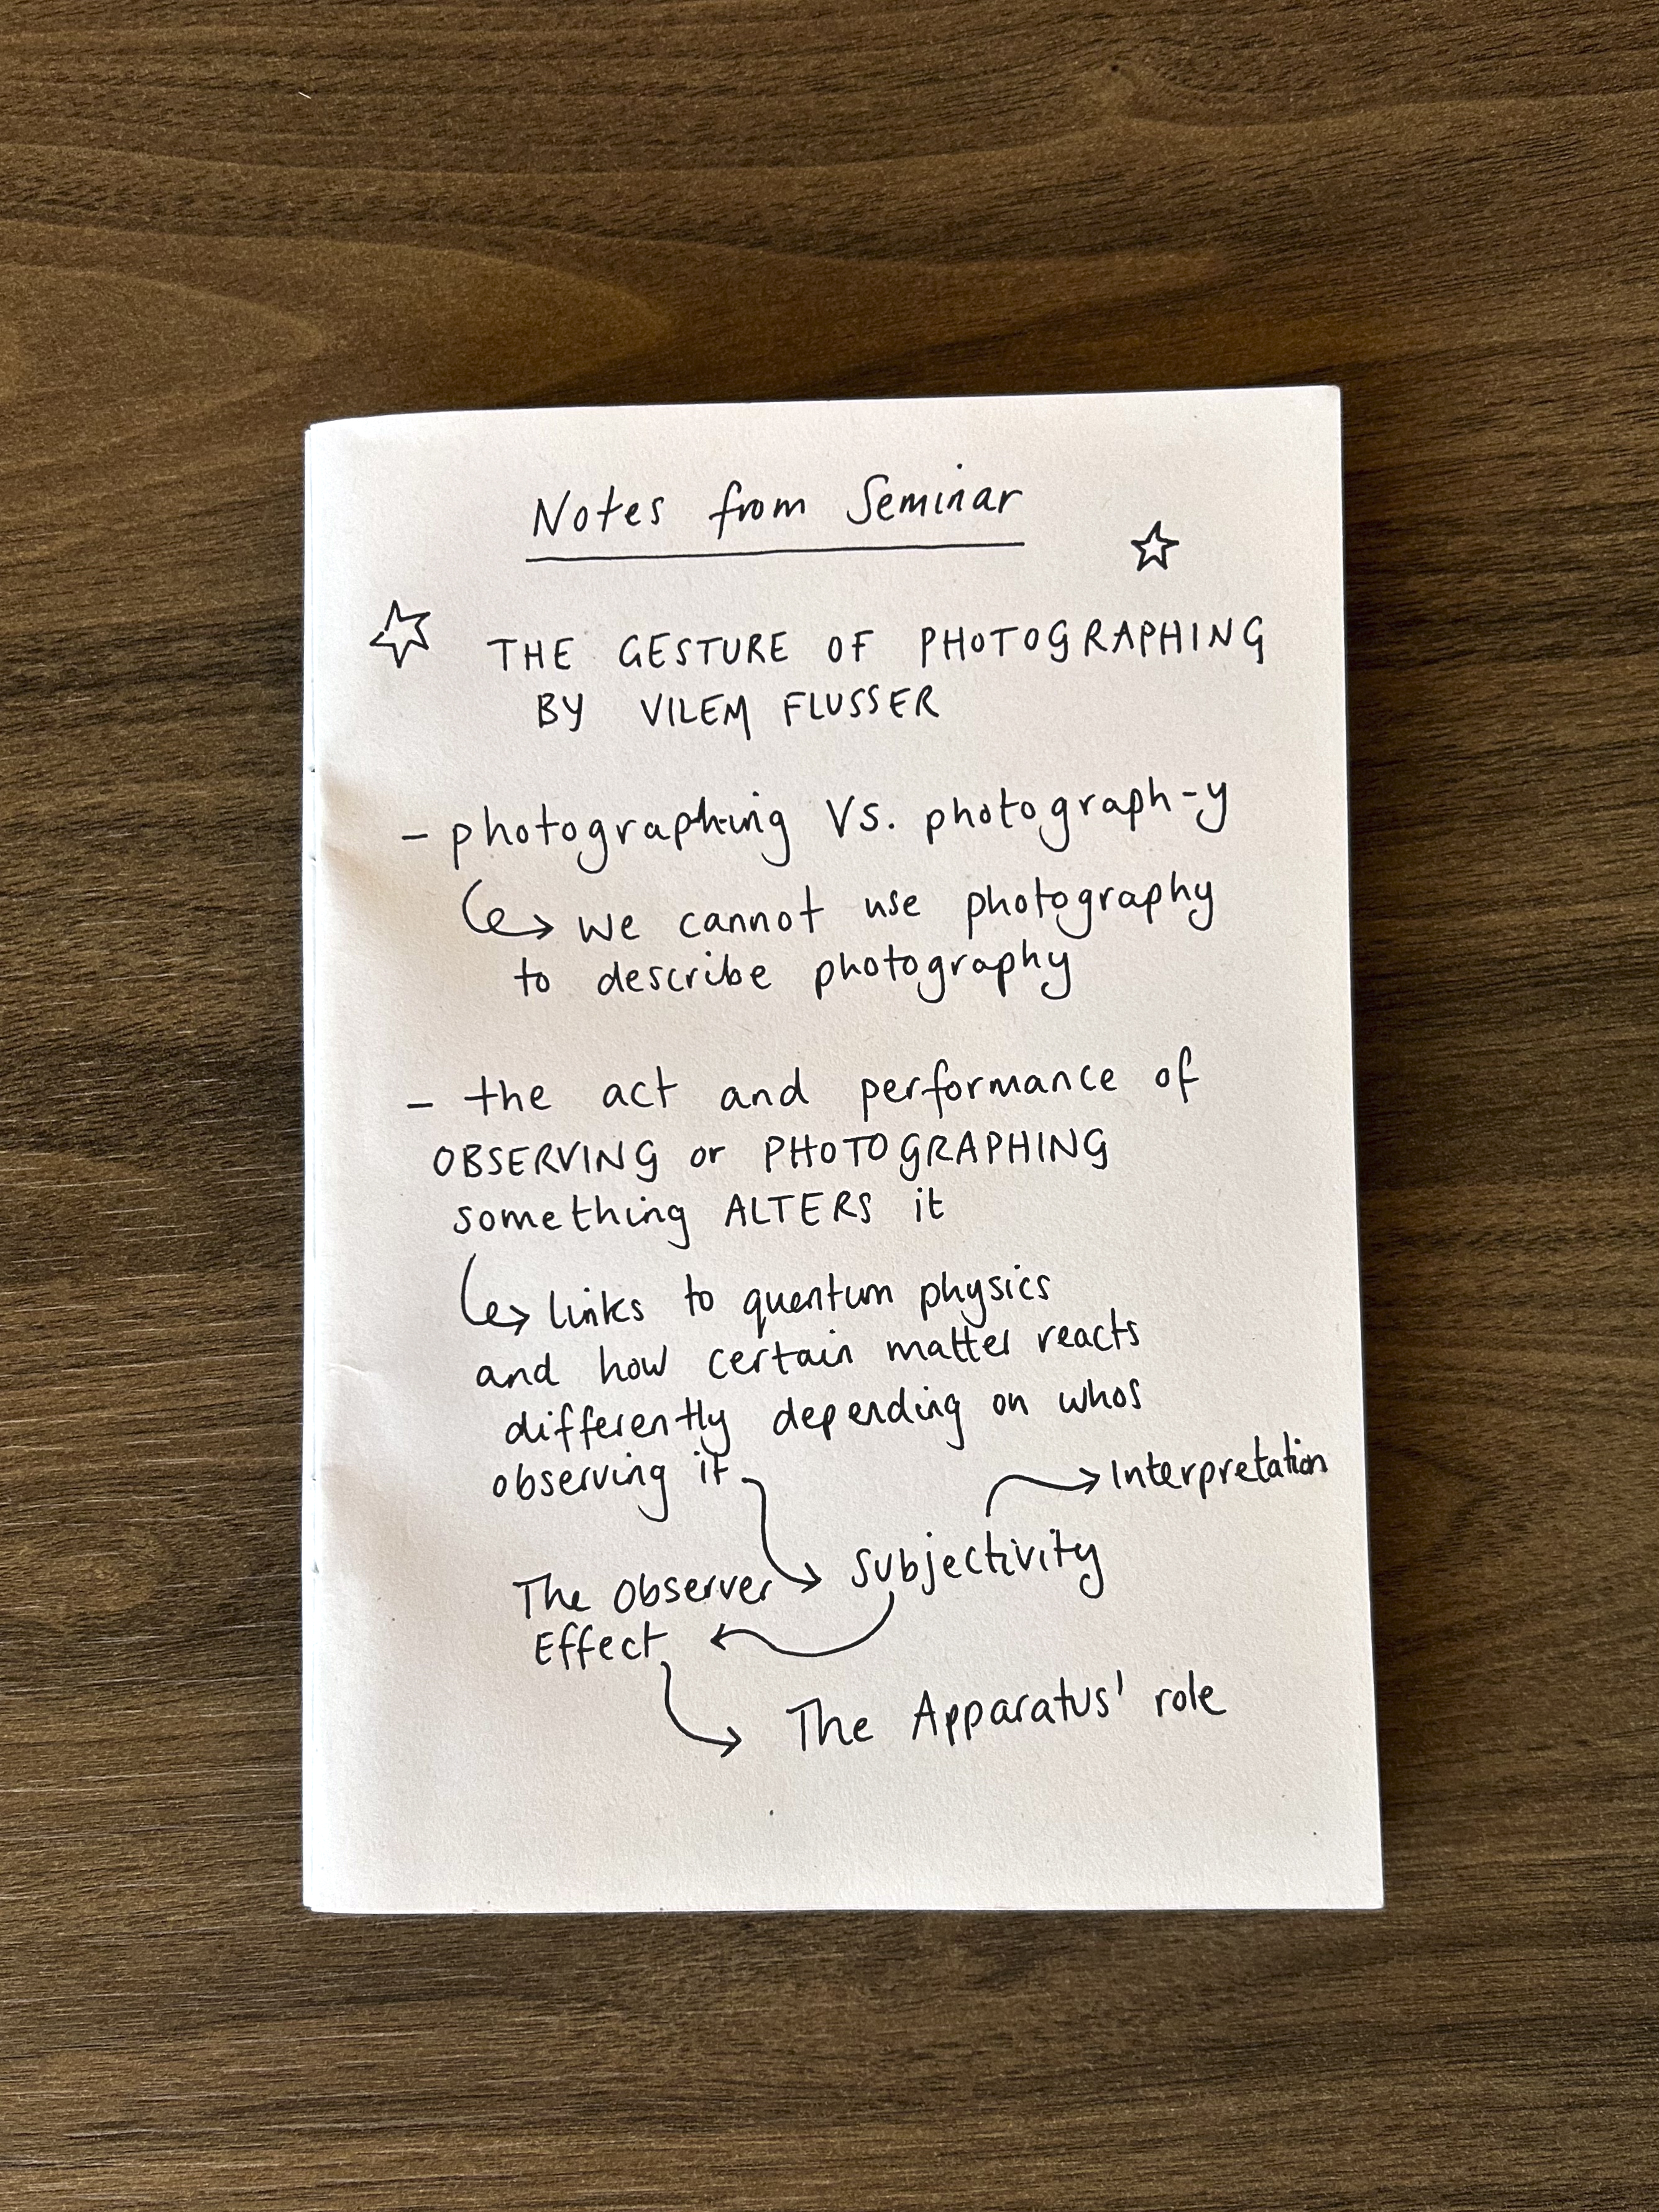 Notes from Seminar
THE GESTURE OF PHOTOGRAPHING
BY VILEM FLUSSER
- photographing Vs. photograph-y
we cannot use photography
to describe photography
- the act and performance of
OBSERVING or PHOTOGRAPHING
something ALTERS it
links to quantum physics
and how certain matter reacts
differently depending on whos
observing it
Interpretation
Subjectivity
The Observer
Effect
The Apparatus' role